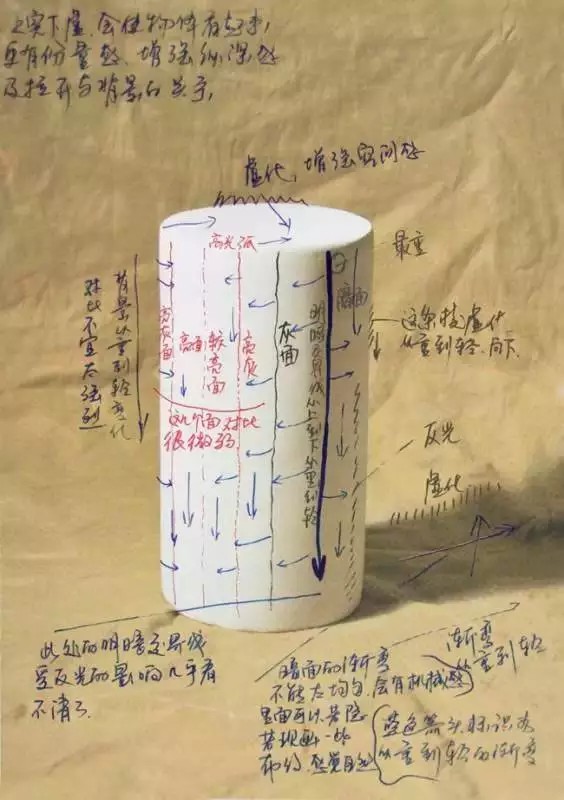 上实下虚,会使物体有起来,
更有份量感,增强纵深感
及拉开与背景的关系,
虚化,增强空间感
高光弧
最重
背景从重到轻变化
对比不宜太强烈
亮灰面
高面
较亮面
亮灰
灰面
明暗交界线从上到下从重到轻
暗面
这条技虚化
从重到轻.向下
这几个面对比
很微弱
反光
虚化
此处的明暗交界线
受反光的影响几乎看
不清了
暗面的渐变
不能太均匀,会有机械感
里面可以若隐
若现画一些
布纹.感觉自然
渐变
从重到轻
蓝色箭头标识为
从重到轻的渐变